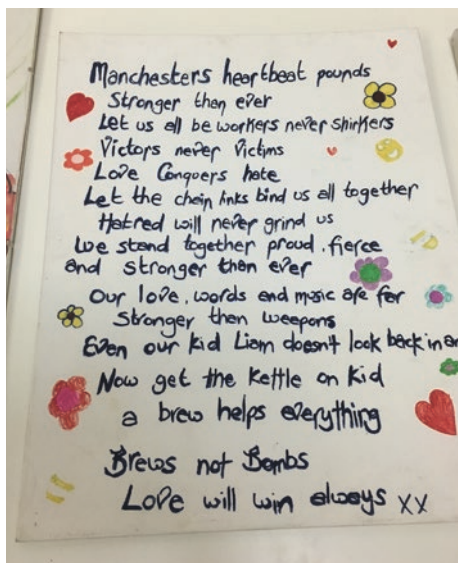 Manchesters heartbeat pounds
Stronger than ever
Let us all be workers never shirkers
Victors never Victims
Love Conquers hate
Let the chain links bind us all together
Hatred will never grind us
We stand together proud. fierce
and stronger than ever
Our love, words and music are far
Stronger then weepons
Even our kid Liam doesn't look back in an
Now get the Kettle on Kid
a brew helps everything
Brews not Bombs
Love will win always xx